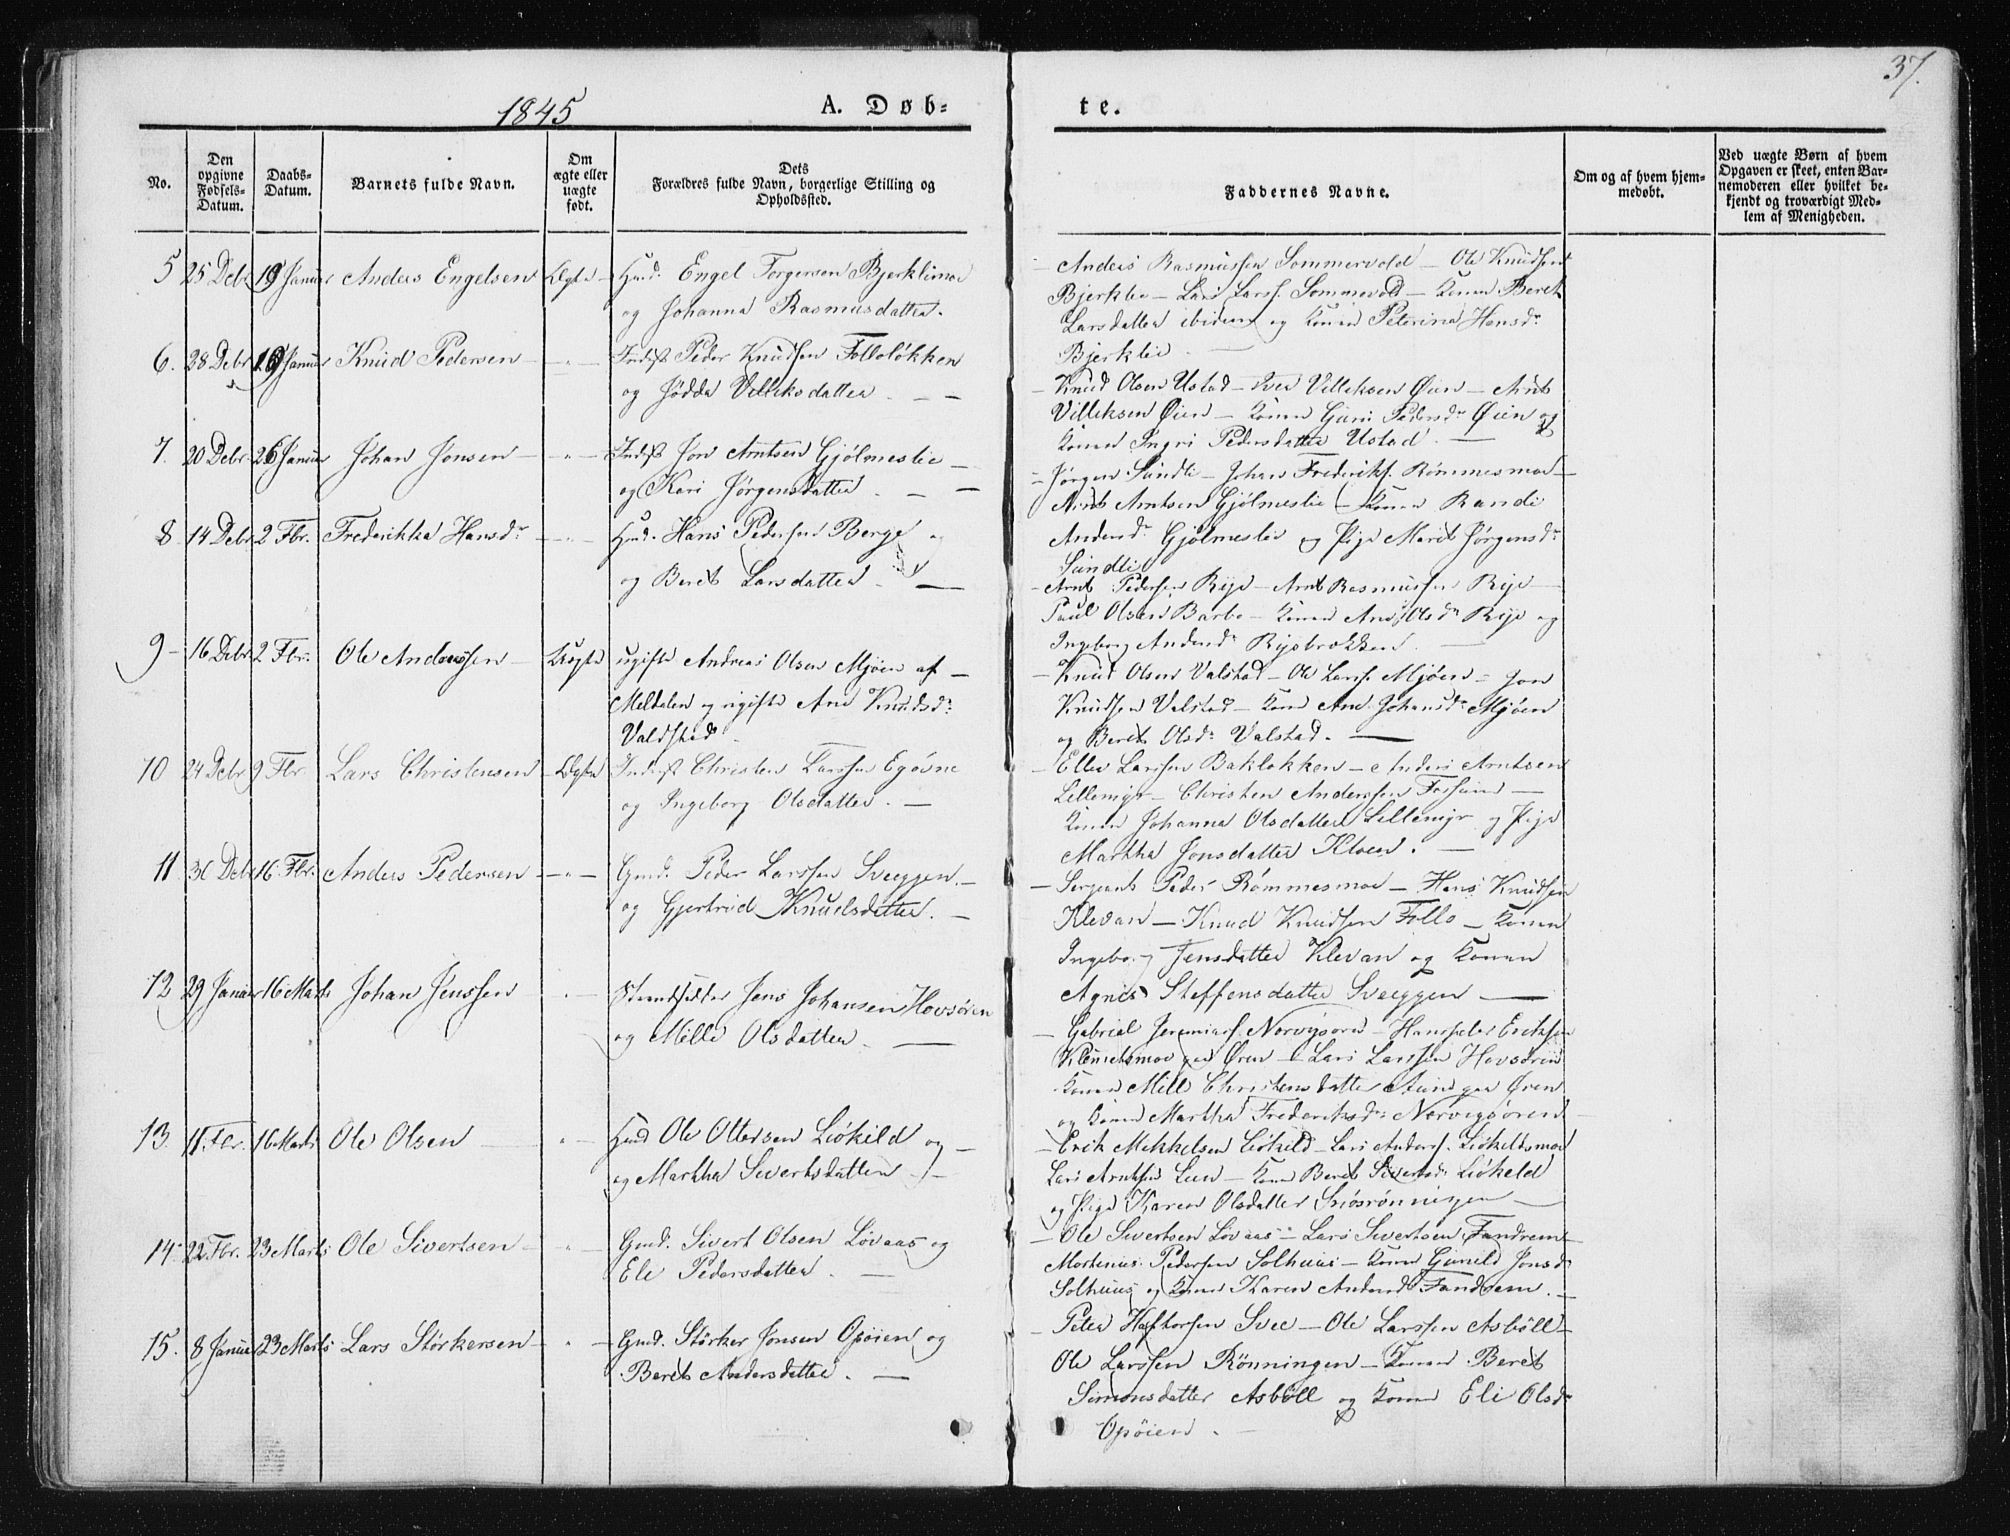 37.
1845
A. Døb-
te.
No.
Den opgivne Fødsels-Datum.
Daabs-Datum.
Barnets fulde Navn.
Om ægte eller uægte født.
Dets Forældres fulde Navn, borgerlige Stilling og Opholdssted.
Faddernes Navne.
Om og af hvem hjem-medøbt.
Ved uægte Børn af hvem Opgaven er skeet, enten Bar-nemoderen eller hvilket be-kjendt og troværdigt Med-lem af Menigheden.
5 25 Debr 19 Januar Anders Engelsen Ægte Huusm. Engel Torgersen Bjerklimoe
og Johanna Rasmusdatter.
Anders Rasmussen Sommervold – Ole Knudsen
Bjerklie – Lars Larss. Sommervold – Konen Beret
Larsdatter ibidem og Konen Peterina Hansdr
Bjerklie
6. 28 Debr 19 Januar Knud Pedersen – " – Inderst Peder Knudsen Folloløkken
og Jødda Villiksdatter.
Knud Olsen Ustad – Iver Villiksen Øien – Arnt
Villiksen Øien – Konen Guri Pedersdr Øien og
Konen Ingri Pedersdatter Ustad.
7. 20 Debr 26 Januar Johan Jonsen – " – Inderst Jon Arntsen Gjølmeslie
og Kari Jørgensdatter.
Jørgen Sundli – Johan Frederiks. Rømmesmoe
Arnt Arntsen Gjølmeslie – Konen Randi
Andersdr Gjølmeslie og Pige Marit Jørgensdr
Sundli
8. 14 Debr 2 Fbr. Frederikka Hansdr – " – Huusm. Hans Pedersen Berge og
og Beret Larsdatter.
Arnt Pedersen Rije – Arnt Rasmussen Rije
Paul Olsen Barbo – Konen Ane Olsdr Rije og
Ingeborg Andersdr Rijebrækken.
9 – 16 Debr 2 Fbr. Ole Andreassen Uægte ugifte Andreas Olsen Mjøen af
Meldalen og ugifte Ane Knudsdr
Valdstad
Knud Olsen Valstad – Ole Larss. Mjøen – Jon
Knudsen Valstad – Kone Ane Johansdr Mjøen
og Beret Olsdr Valstad.
10 24 Debr 9 Fbr. Lars Christensen Ægte Inderst Christen Larssen Egøvne
og Ingeborg Olsdatter.
Ellev Larssen Bakløkken – Anders Arntsen
Lillemyr – Christen Anderssen Fossum
Konen Johanna Olsdatter Lillemyr og Pige
Martha Jonsdatter Kloen.
11 30 Debr 16. Fbr. Anders Pedersen – " – Gmd. Peder Larssen Sveeggen
og Gjertrud Knudsdatter.
Sergeant Peder Rømmesmoe – Hans Knudsen
Klevan – Knud Knudsen Follo – Konen
Ingeborg Jensdatter Klevan og Konen
Agnes Steffensdatter Sveeggen
12 29 Januar 16 Marts Johan Jenssen " Strandsidder Jens Johansen Hovsøren
og Mille Olsdatter.
Gabriel Jeremiass. Norvigøren – Hanspeter Eriksen
Klinetsmoe paa Øren – Lars Larssen Hovsøren
Konen Mille Christensdatter Aune paa Øren
og Konen Martha Frederiksdr Norvigsøren
13. 11. Fbr. 16 Marts Ole Olsen " Huusm Ole Ottersen Liøkild og
og Martha Sivertsdatter
Erik Mikkelsen Liøkild – Lars Anders. Liøkildsmoe
Lars Arntsen Luen – Kone Beret Sivertsdr Liøkild
og Pige Karen Olsdatter Sniøsrønningen
14 22 Fbr. 23 Marts Ole Sivertsen " Gmd. Sivert Olsen Løvaas og
Eli Pedersdatter.
Ole Sivertsen Løvaas – Lars Sivertsen Fandrem
Mortinus Pedersen Solhuus – Konen Gunild Jonsdr
Solhuus og Konen Karen Andersdr Fandrem.
15. 8 Januar 23 Marts Lars Størkersen " Gmd. Størker Jonsen Opøien og
Beret Andersdatter.
Peter Haftorsen Svee – Ole Larssen Asbøll
Ole Larssen Rønningen – Konen Beret
Simonsdatter Asbøll og Konen Eli Olsdr
Opøien.